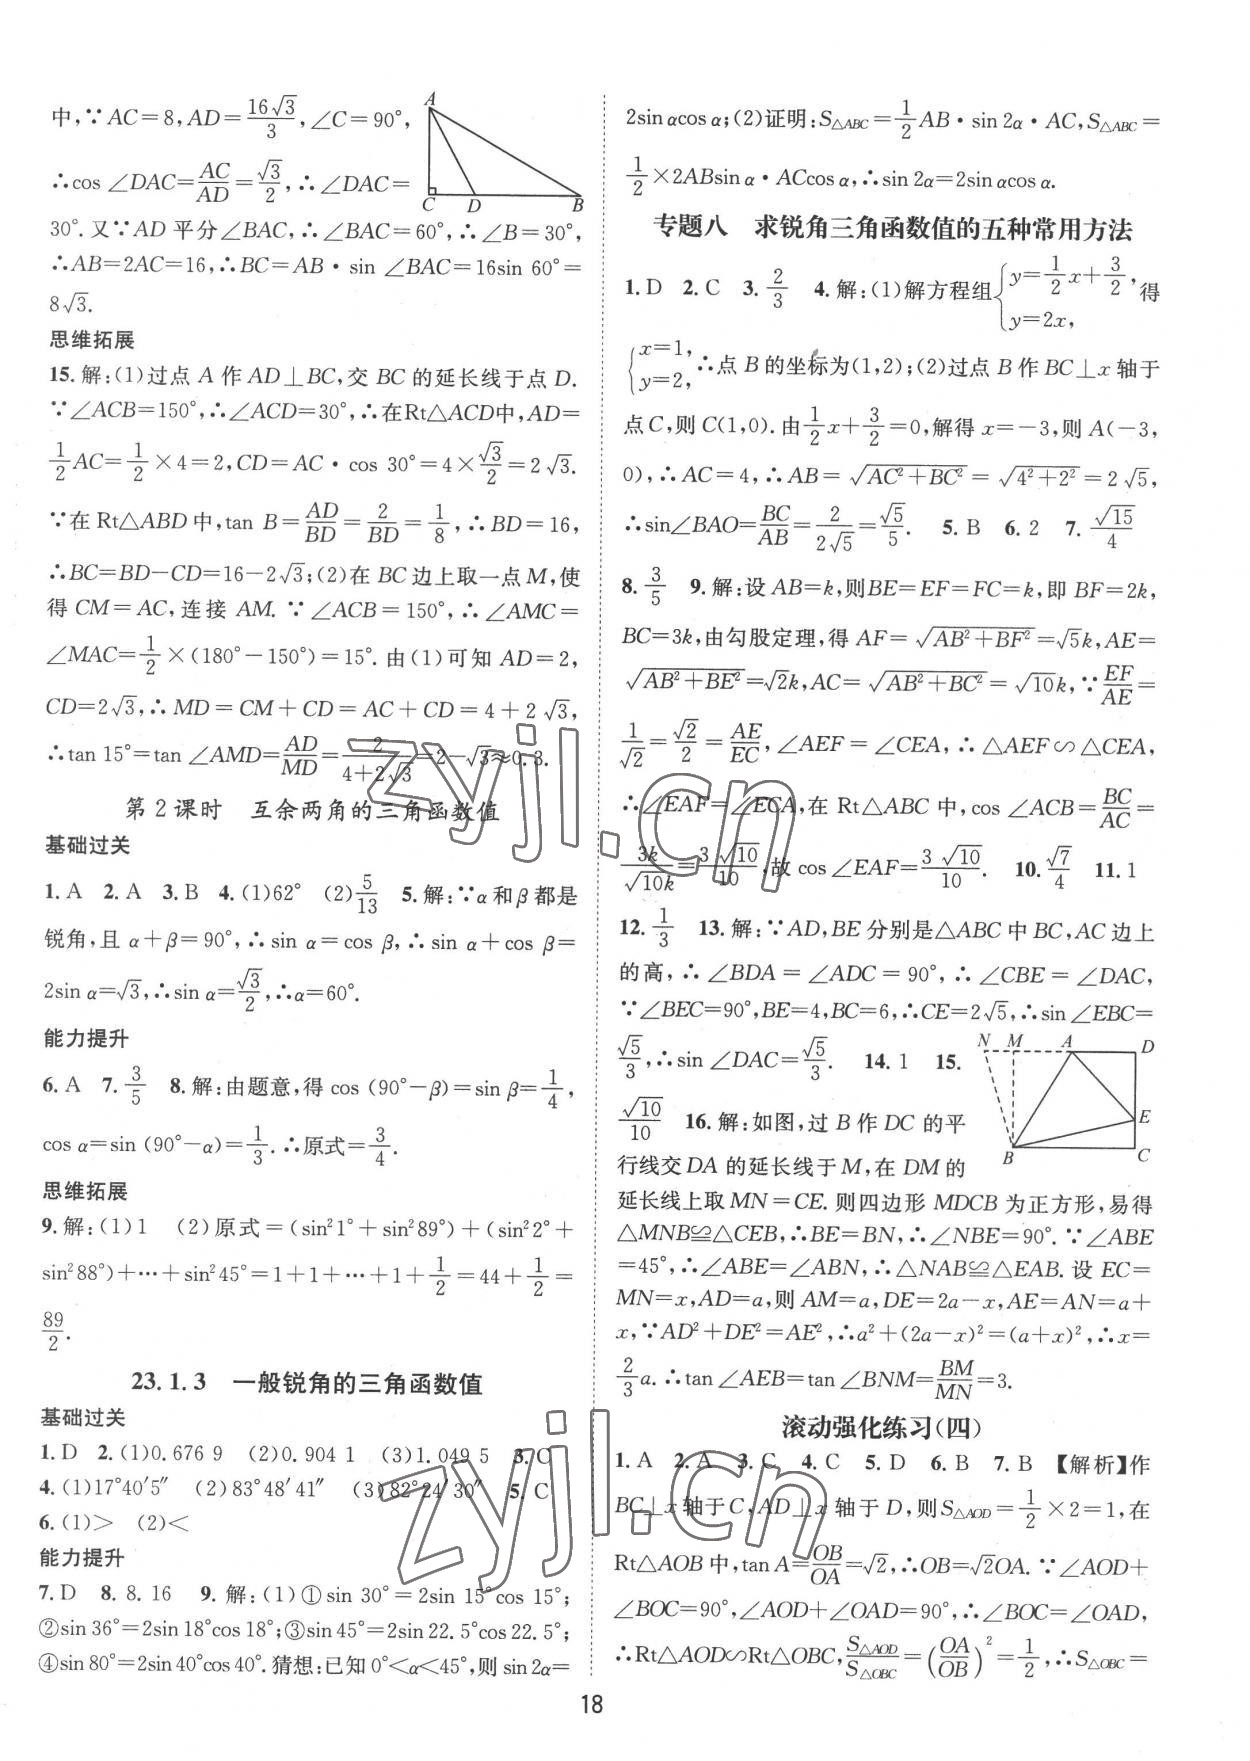 中,∵AC=8,AD=\frac{16\sqrt{3}}{3},∠C=90°,
∴cos ∠DAC=\frac{AC}{AD}=\frac{\sqrt{3}}{2},∴∠DAC=
30°.又∵AD平分∠BAC,∴∠BAC=60°,∴∠B=30°,
∴AB=2AC=16,∴BC=AB·sin ∠BAC=16sin 60°=
8\sqrt{3}.
A
C D B
思维拓展
15.解:(1)过点A作AD⊥BC,交BC的延长线于点D.
∵∠ACB=150°,∴∠ACD=30°,∴在Rt△ACD中,AD=
\frac{1}{2}AC=\frac{1}{2}×4=2,CD=AC·cos 30°=4×\frac{\sqrt{3}}{2}=2\sqrt{3}.
∵在Rt△ABD中,tan B=\frac{AD}{BD}=\frac{2}{BD}=\frac{1}{8},∴BD=16,
∴BC=BD-CD=16-2\sqrt{3};(2)在BC边上取一点M,使
得CM=AC,连接AM.∵∠ACB=150°,∴∠AMC=
∠MAC=\frac{1}{2}×(180°-150°)=15°.由(1)可知AD=2,
CD=2\sqrt{3},∴MD=CM+CD=AC+CD=4+2\sqrt{3},
∴tan 15°=tan ∠AMD=\frac{AD}{MD}=\frac{2}{4+2\sqrt{3}}=2-\sqrt{3}≈0.3.
第2课时 互余两角的三角函数值
基础过关
1.A 2.A 3.B 4.(1)62° (2)\frac{5}{13} 5.解:∵α和β都是
锐角,且α+β=90°,∴sin α=cos β,∴sin α+cos β=
2sin α=\sqrt{3},∴sin α=\frac{\sqrt{3}}{2},∴α=60°.
能力提升
6.A 7.\frac{3}{5} 8.解:由题意,得cos (90°-β)=sin β=\frac{1}{4},
cos α=sin (90°-α)=\frac{1}{3}.∴原式=\frac{3}{4}.
思维拓展
9.解:(1)1 (2)原式=(sin²1°+sin²89°)+(sin²2°+
sin²88°)+…+sin²45°=1+1+…+1+\frac{1}{2}=44+\frac{1}{2}=
\frac{89}{2}.
23.1.3 一般锐角的三角函数值
基础过关
1.D 2.(1)0.676 9 (2)0.904 1 (3)1.049 5 3.C
4.(1)17°40′5″ (2)83°48′41″ (3)82°24′30″ 5.C
6.(1)> (2)<
能力提升
7.D 8.8.16 9.解:(1)①sin 30°=2sin 15°cos 15°;
②sin 36°=2sin 18°cos 18°;③sin 45°=2sin 22.5°cos 22.5°;
④sin 80°=2sin 40°cos 40°.猜想:已知0°<α<45°,则sin 2α=
2sin αcos α;(2)证明:S△ABC=\frac{1}{2}AB·sin 2α·AC,S△ABC=
\frac{1}{2}×2ABsin α·ACcos α,∴sin 2α=2sin αcos α.
专题八 求锐角三角函数值的五种常用方法
1.D 2.C 3.\frac{2}{3} 4.解:(1)解方程组{y=\frac{1}{2}x+\frac{3}{2}, y=2x, 得
{x=1, y=2, ∴点B的坐标为(1,2);(2)过点B作BC⊥x轴于
点C,则C(1,0).由\frac{1}{2}x+\frac{3}{2}=0,解得x=-3,则A(-3,
0),∴AC=4,∴AB=\sqrt{AC²+BC²}=\sqrt{4²+2²}=2\sqrt{5},
∴sin∠BAO=\frac{BC}{AB}=\frac{2}{2\sqrt{5}}=\frac{\sqrt{5}}{5}. 5.B 6.2 7.\frac{\sqrt{15}}{4}
8.\frac{3}{5} 9.解:设AB=k,则BE=EF=FC=k,即BF=2k,
BC=3k,由勾股定理,得AF=\sqrt{AB²+BF²}=\sqrt{5}k,AE=
\sqrt{AB²+BE²}=\sqrt{2}k,AC=\sqrt{AB²+BC²}=\sqrt{10}k,∵\frac{EF}{AE}=
\frac{1}{\sqrt{2}}=\frac{\sqrt{2}}{2}=\frac{AE}{EC},∠AEF=∠CEA,∴△AEF∽△CEA,
∴∠EAF=∠ECA,在Rt△ABC中,cos ∠ACB=\frac{BC}{AC}=
\frac{3k}{\sqrt{10}k}=\frac{3\sqrt{10}}{10},故cos ∠EAF=\frac{3\sqrt{10}}{10}. 10.\frac{\sqrt{7}}{4} 11.1
12.\frac{1}{3} 13.解:∵AD,BE分别是△ABC中BC,AC边上
的高,∴∠BDA=∠ADC=90°,∴∠CBE=∠DAC,
∵∠BEC=90°,BE=4,BC=6,∴CE=2\sqrt{5},∴sin ∠EBC=
\frac{\sqrt{5}}{3},∴sin ∠DAC=\frac{\sqrt{5}}{3}. 14.1 15.
\frac{\sqrt{10}}{10} 16.解:如图,过B作DC的平
行线交DA的延长线于M,在DM的
N M A D
E
B C
延长线上取MN=CE.则四边形MDCB为正方形,易得
△MNB≌△CEB,∴BE=BN,∴∠NBE=90°.∵∠ABE
=45°,∴∠ABE=∠ABN,∴△NAB≌△EAB.设EC=
MN=x,AD=a,则AM=a,DE=2a-x,AE=AN=a+
x,∵AD²+DE²=AE²,∴a²+(2a-x)²=(a+x)²,∴x=
\frac{2}{3}a.∴tan ∠AEB=tan ∠BNM=\frac{BM}{MN}=3.
滚动强化练习(四)
1.A 2.A 3.C 4.C 5.D 6.B 7.B 【解析】作
BC⊥x轴于C,AD⊥x轴于D,则S△AOD=\frac{1}{2}×2=1,在
Rt△AOB中,tan A=\frac{OB}{OA}=\sqrt{2},∴OB=\sqrt{2}OA.∵∠AOD+
∠BOC=90°,∠AOD+∠OAD=90°,∴∠BOC=∠OAD,
∴Rt△AOD∽Rt△OBC,\frac{S△AOD}{S△OBC}=(\frac{OA}{OB})²=\frac{1}{2},∴S△OBC=
18
zyjl.cn
zyjl.cn